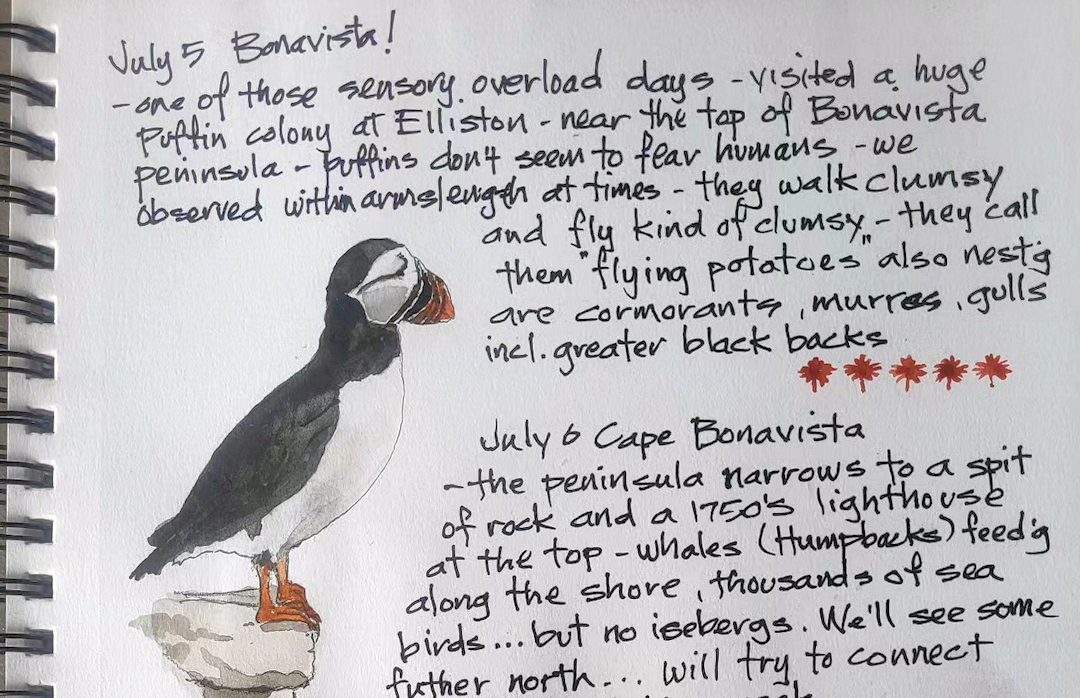 July 5 Bonavista!
- one of those sensory overload days - visited a huge
puffin colony at Elliston - near the top of Bonavista
peninsula - puffins don't seem to fear humans - we
observed within armslength at times - they walk clumsy
and fly kind of clumsy - they call
them "flying potatoes" also nest'g
are cormorants, murres, gulls
incl. greater black backs
July 6 Cape Bonavista
- the peninsula narrows to a spit
of rock and a 1750's lighthouse
at the top - whales (Humpbacks) feed'g
along the shore, thousands of sea
birds... but no isebergs. We'll see some
futher north... will try to connect